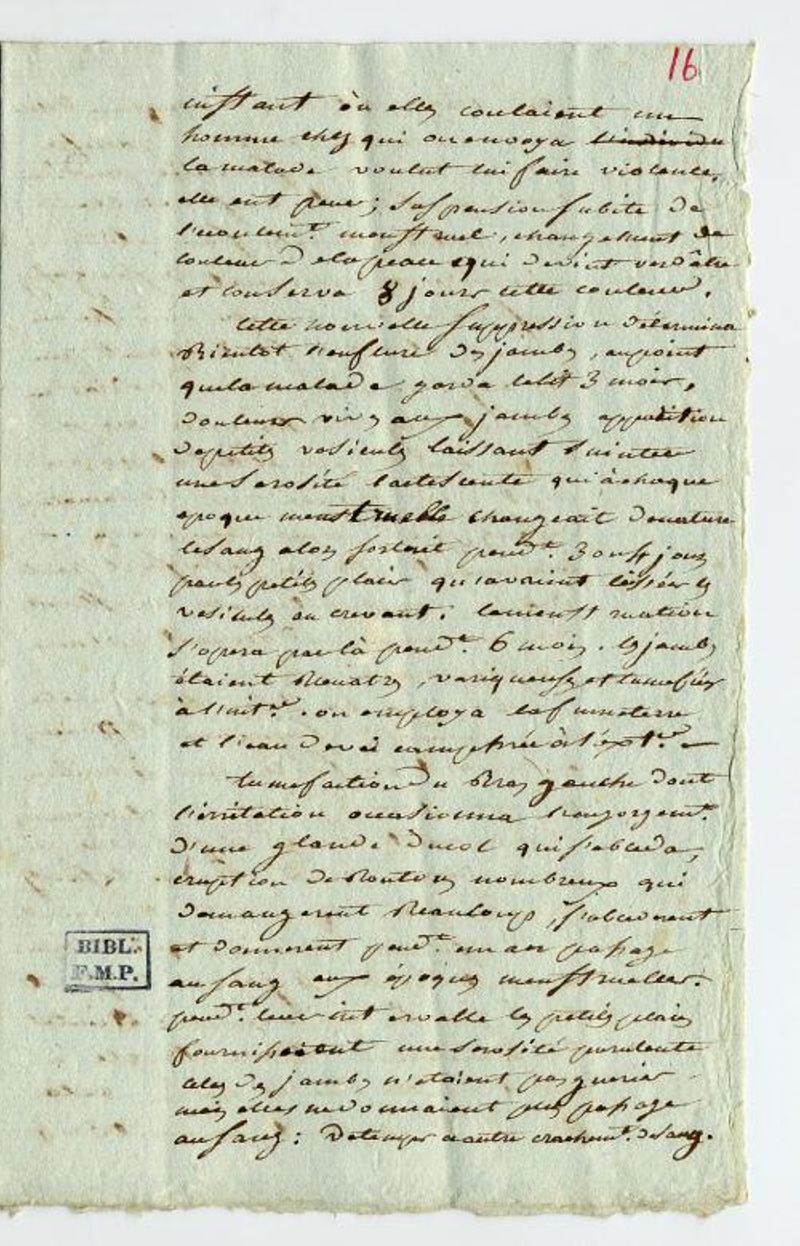 16
instant où elles coulaient un
homme chez qui on envoya l'individu
la malade voulut lui faire violence,
elle eut peur; suspension subite de
l'écoulemt. menstruel, changement de
couleur de la peau qui devint verdâtre
et conserva 8 jours cette couleur.
Cette nouvelle suppression détermina
Bientot l'enflure des jambes, au point
que la malade garda le lit 3 mois,
douleurs vives aux jambes apparition
de petites vesicules laissant suinter
une serosité lactescente qui à chaque
epoque menstruelle changeait de nature
le sang alors sortait pendt. 3 ou 4 jours
par les petites plaies qu'avaient laissées les
vesicules en crevant. la menstruation
s'opera par là pendt. 6 mois. les jambes
étaient Bleuatres, variqueuses et tumefiées
à l'intr. on employa la fumeterre
et l'eau de vie camphrée à l'extr. —
tumefaction du Bras gauche dont
l'irritation occasionna l'engorgemt.
d'une glande du col qui s'abceda,
eruption de Boutons nombreux qui
demangerent Beaucoup, s'abcederent
et donnerent pendt. un an passage
au sang aux époques menstruelles.
pendt. leur intervalle les petites plaies
fournissaient une serosité purulente
celles des jambes n'etaient pas gueries
mais elles ne donnaient plus passage
au sang: De temps a autre crachemt. de sang.
BIBL.
F.M.P.